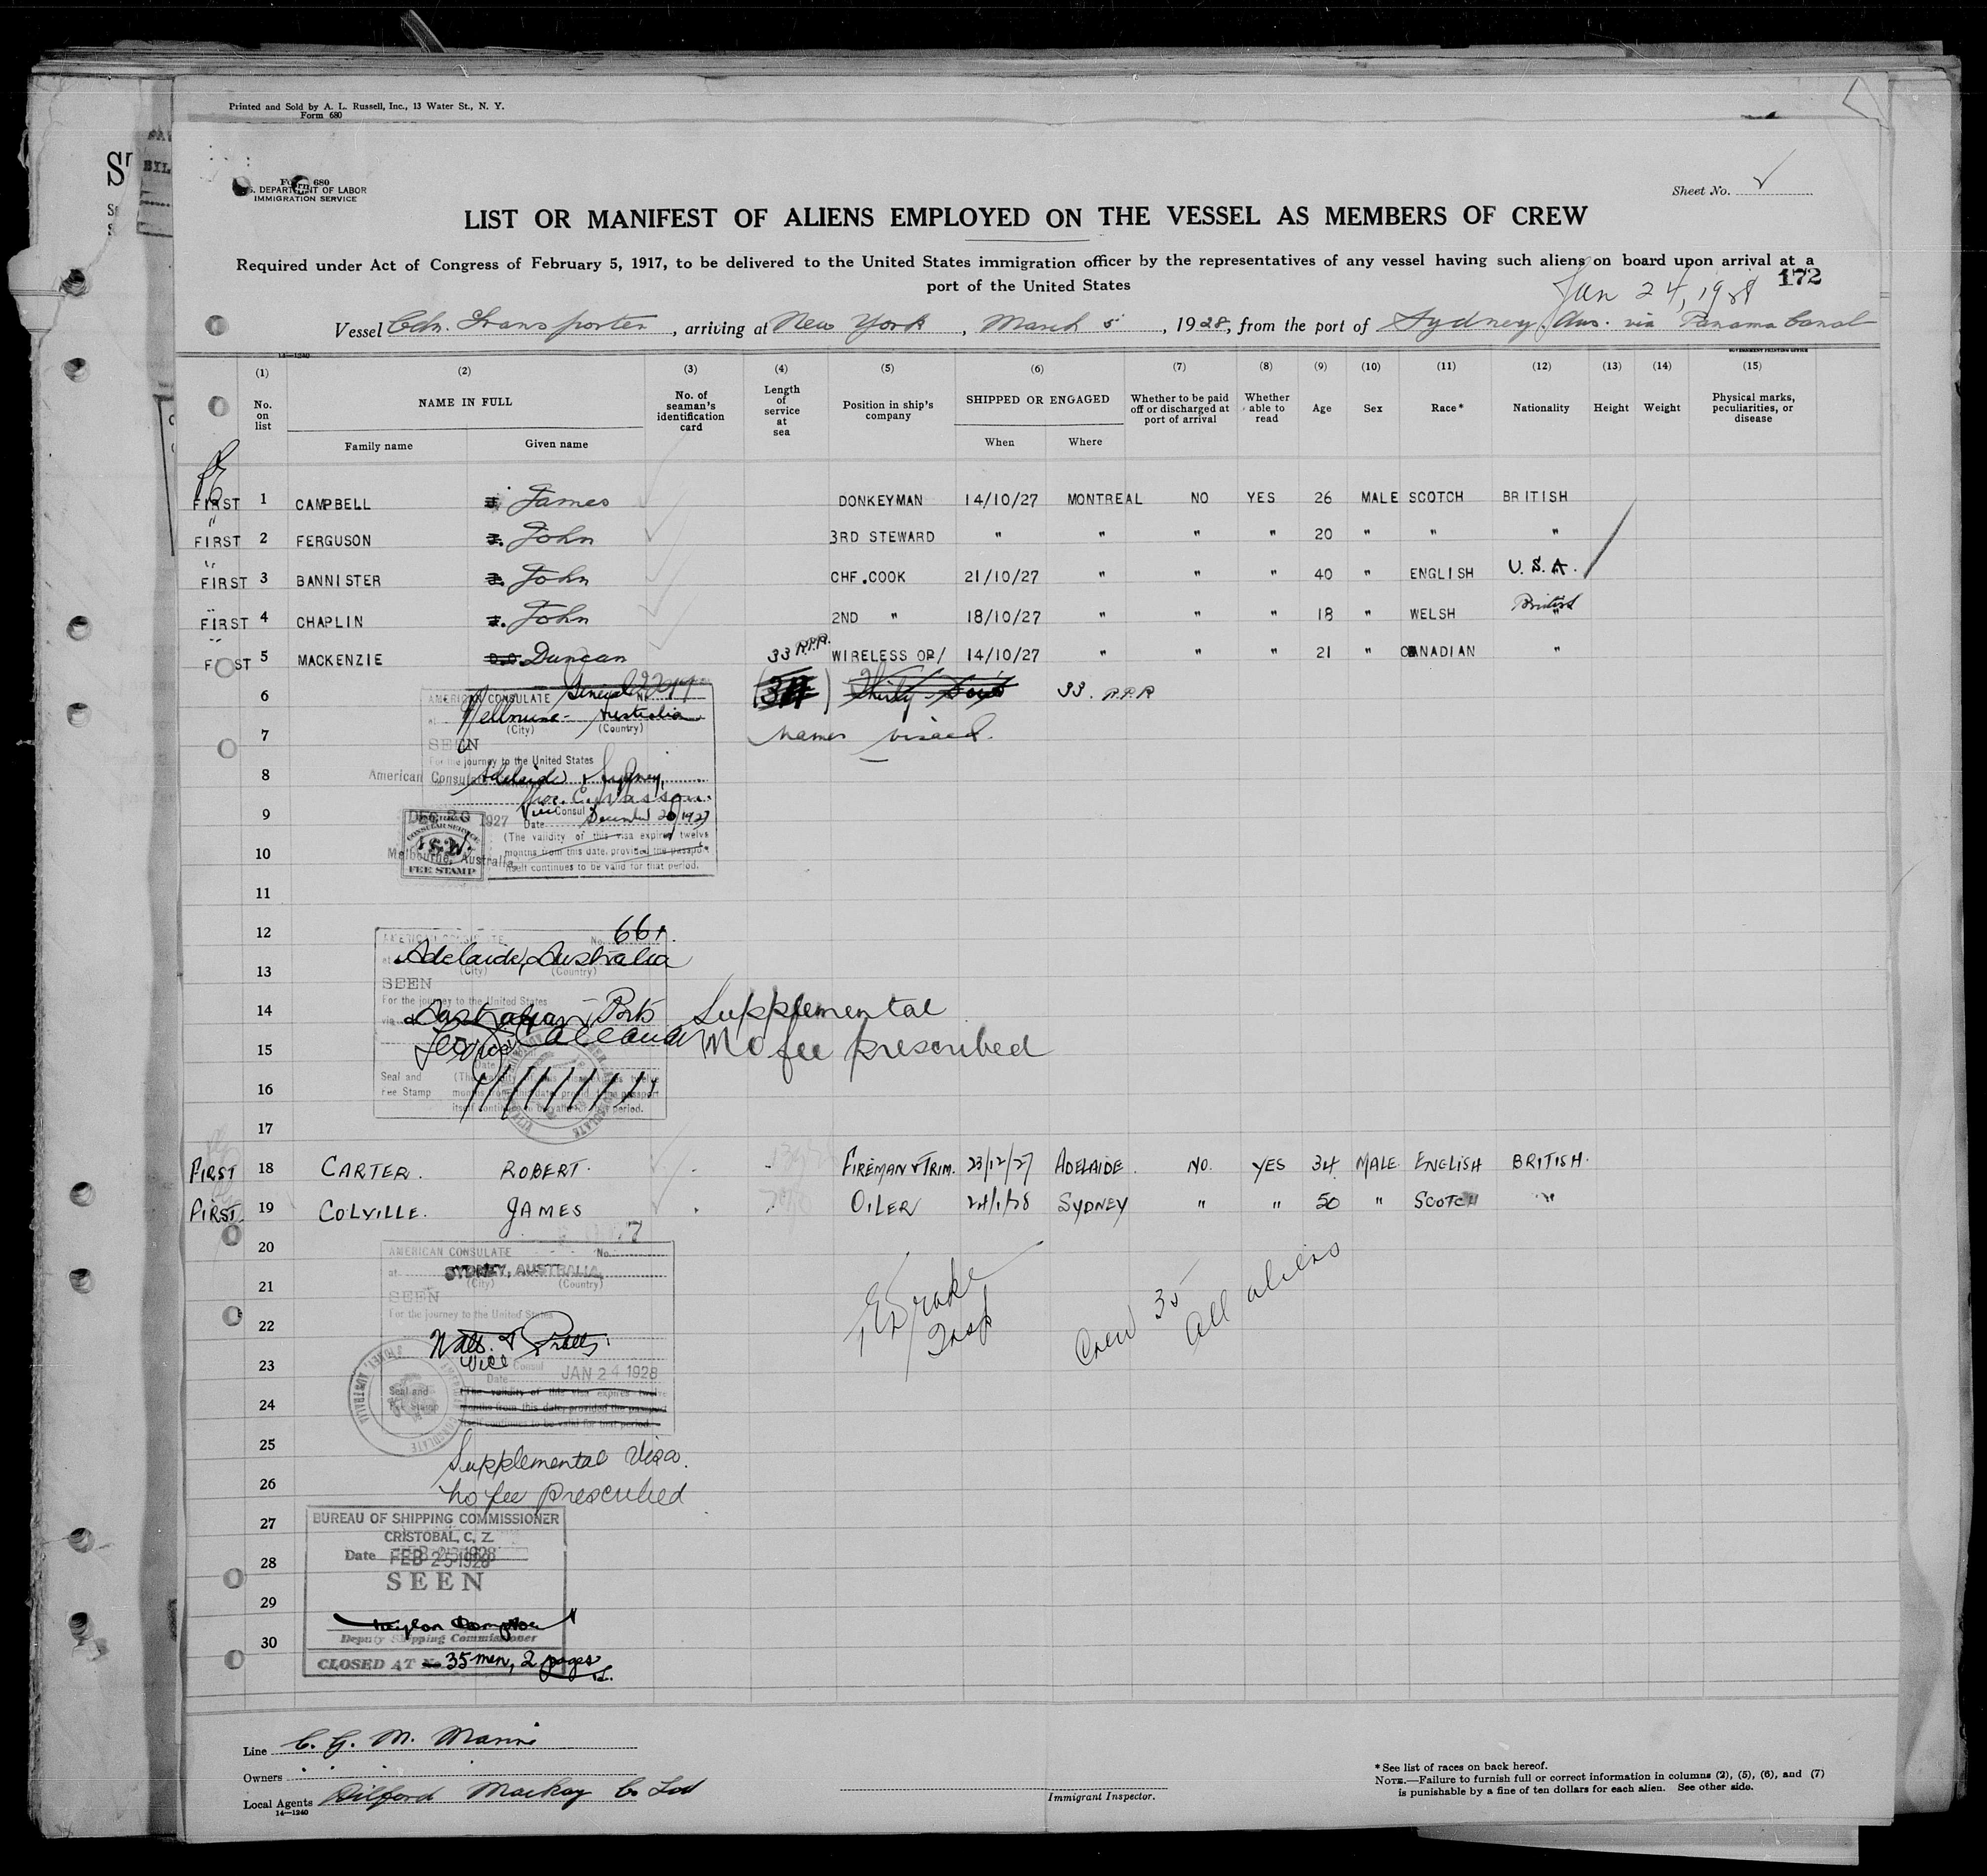 Printed and Sold by A. L. Russell, Inc., 13 Water St., N. Y.
Form 680
Form 680
S. DEPARTMENT OF LABOR
IMMIGRATION SERVICE
Sheet No.
LIST OR MANIFEST OF ALIENS EMPLOYED ON THE VESSEL AS MEMBERS OF CREW
Required under Act of Congress of February 5, 1917, to be delivered to the United States immigration officer by the representatives of any vessel having such aliens on board upon arrival at a
port of the United States
172
Jan 24, 1928
Vessel Cdn. Transporter, arriving at New York, March 5, 1928, from the port of Sydney, Aus. via Panama Canal
14—1240
GOVERNMENT PRINTING OFFICE
(1) (2) (3) (4) (5) (6) (7) (8) (9) (10) (11) (12) (13) (14) (15)
No. on list NAME IN FULL Family name Given name No. of seaman's identification card Length of service at sea Position in ship's company SHIPPED OR ENGAGED When Where Whether to be paid off or discharged at port of arrival Whether able to read Age Sex Race* Nationality Height Weight Physical marks, peculiarities, or disease
FIRST 1 CAMPBELL J. James DONKEYMAN 14/10/27 MONTREAL NO YES 26 MALE SCOTCH BRITISH
" FIRST 2 FERGUSON J. John 3RD STEWARD " " " " 20 " " "
" FIRST 3 BANNISTER J. John CHF.COOK 21/10/27 " " " 40 " ENGLISH U.S.A.
" FIRST 4 CHAPLIN J. John 2ND " 18/10/27 " " " 18 " WELSH British "
" FIRST 5 MACKENZIE D.D Duncan 33 R.P.R. WIRELESS OP/ 14/10/27 " " " 21 " CANADIAN "
6 AMERICAN CONSULATE General No. (34) 33. R.P.R
at Melbourne Australia
7 (City) (Country) names visaed.
SEEN
For the journey to the United States
8 American Consulate Adelaide & Sydney
9 DEC 20 1927 Vice Consul
Date December 20/1927
(The validity of this visa expires twelve
10 Melbourne, Australia. months from this date, provided the passport
FEE STAMP itself continues to be valid for that period.
11
12 AMERICAN CONSULATE No. 661.
13 at Adelaide, Australia
(City) (Country)
SEEN
For the journey to the United States
14 via Australian Ports Supplemental
15 No fee prescribed
Date
16 Seal and Fee Stamp (The validity of this visa expires twelve
months from this date, provided the passport
itself continues to be valid for that period.
17
FIRST 18 CARTER. ROBERT. FIREMAN & TRIM. 23/12/27 ADELAIDE. NO. YES 34 MALE ENGLISH BRITISH.
FIRST. 19 COLVILLE. JAMES OILER 24/1/28 SYDNEY " " 50 " SCOTCH "
20 AMERICAN CONSULATE No. 7
at SYDNEY, AUSTRALIA.
21 (City) (Country)
SEEN
For the journey to the United States
Drake
Insp
Crew 35
All aliens
22
Vice Consul
23 Date JAN 24 1928
Seal and Fee Stamp (The validity of this visa expires twelve
24 months from this date, provided the passport
itself continues to be valid for that period.
25 Supplemental Visa.
26 no fee prescribed
27 BUREAU OF SHIPPING COMMISSIONER
CRISTOBAL, C. Z.
28 Date FEB 25 1928
SEEN
29
Deputy Shipping Commissioner
30 CLOSED AT No 35 men, 2 pages
Line C. G. M. Marine
Owners " " "
Local Agents Dilford Mackay Co Ltd
14—1240
Immigrant Inspector.
*See list of races on back hereof.
NOTE.—Failure to furnish full or correct information in columns (2), (5), (6), and (7)
is punishable by a fine of ten dollars for each alien. See other side.